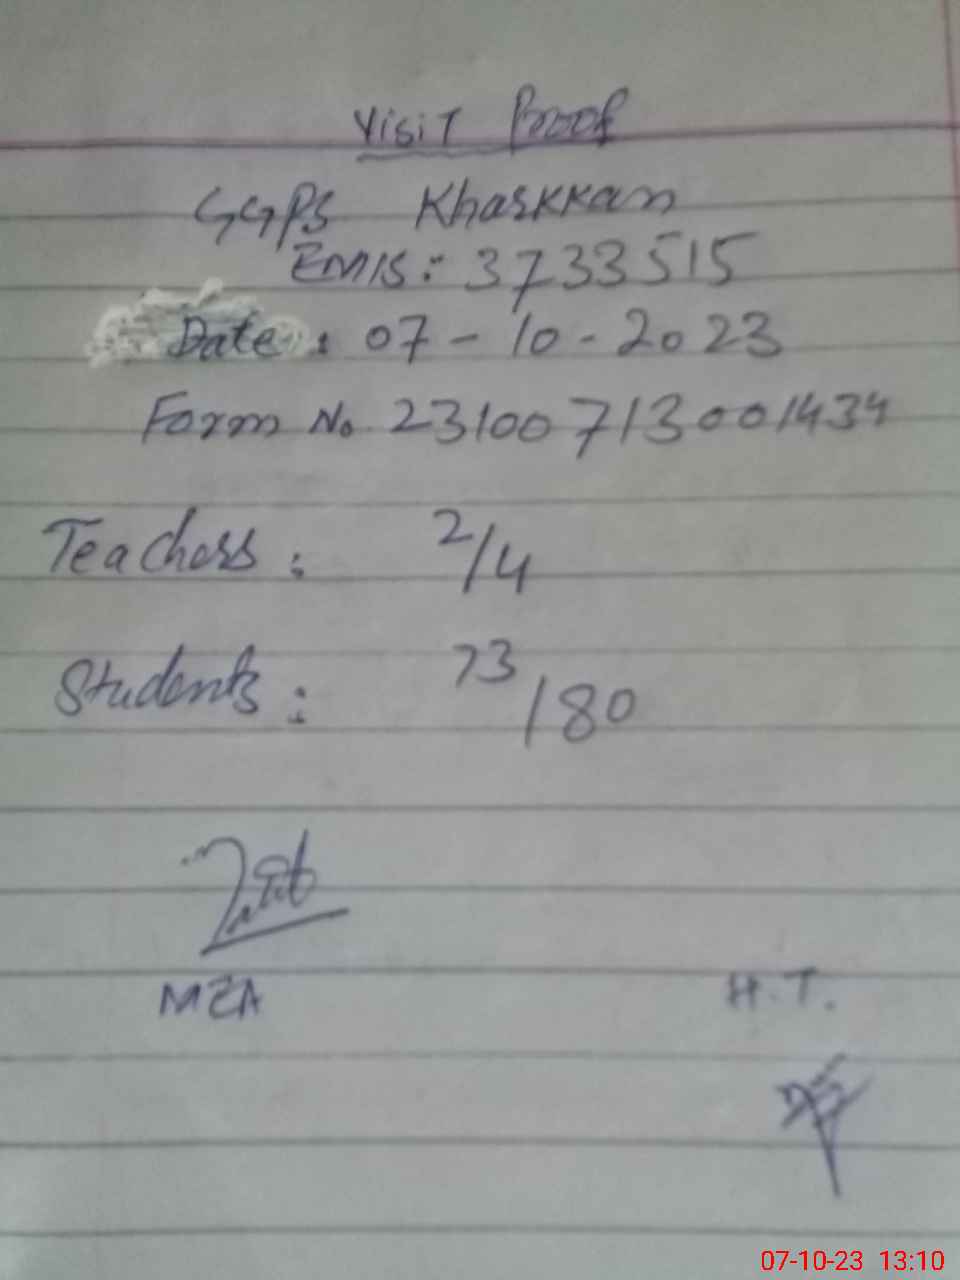 Visit Proof
GGPS Kharkkan
EMIS: 3733515
Date: 07-10-2023
Form No 23100713001434
Teachers: 2/4
Students: 73/180
MEA
H.T.
07-10-23 13:10